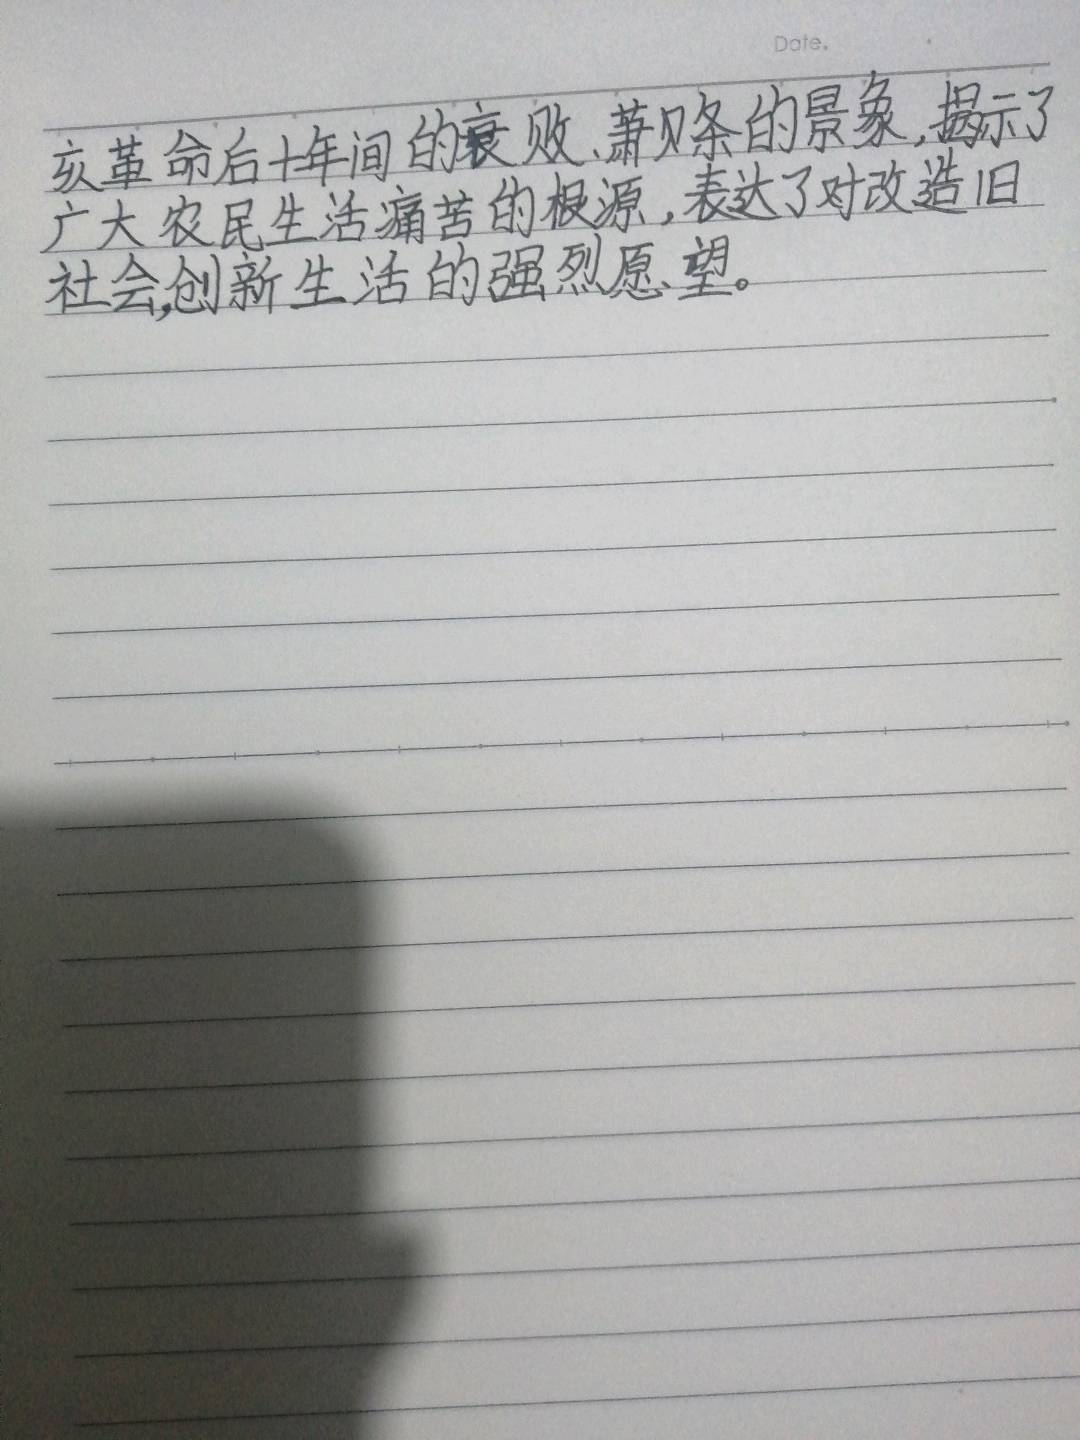 Date.
亥革命后十年间的衰败、萧条的景象,揭示了
广大农民生活痛苦的根源,表达了对改造旧
社会,创新生活的强烈愿望。